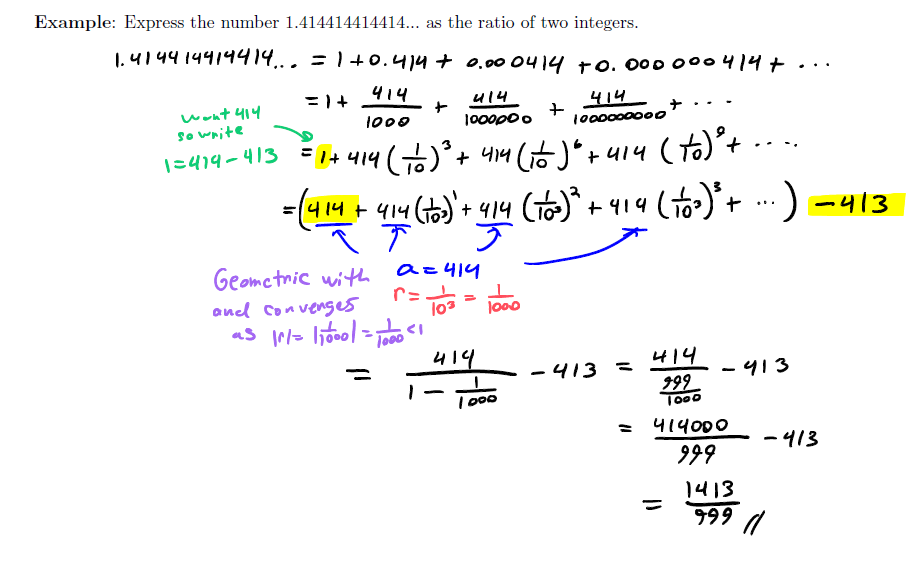 Example: Express the number 1.414414414414... as the ratio of two integers.
1.414414414414... = 1 + 0.414 + 0.000414 + 0.000000414 + ...
= 1 + 414/1000 + 414/1000000 + 414/1000000000 + ...
want 414
so write
1 = 414 - 413
= 1 + 414 (1/10)^3 + 414 (1/10)^6 + 414 (1/10)^9 + ....
= (414 + 414 (1/10^3)^1 + 414 (1/10^3)^2 + 414 (1/10^3)^3 + ...) - 413
Geometric with a = 414
r = 1/10^3 = 1/1000
and converges
as |r| = |1/1000| = 1/1000 < 1
= 414/(1 - 1/1000) - 413 = 414/(999/1000) - 413
= 414000/999 - 413
= 1413/999 //